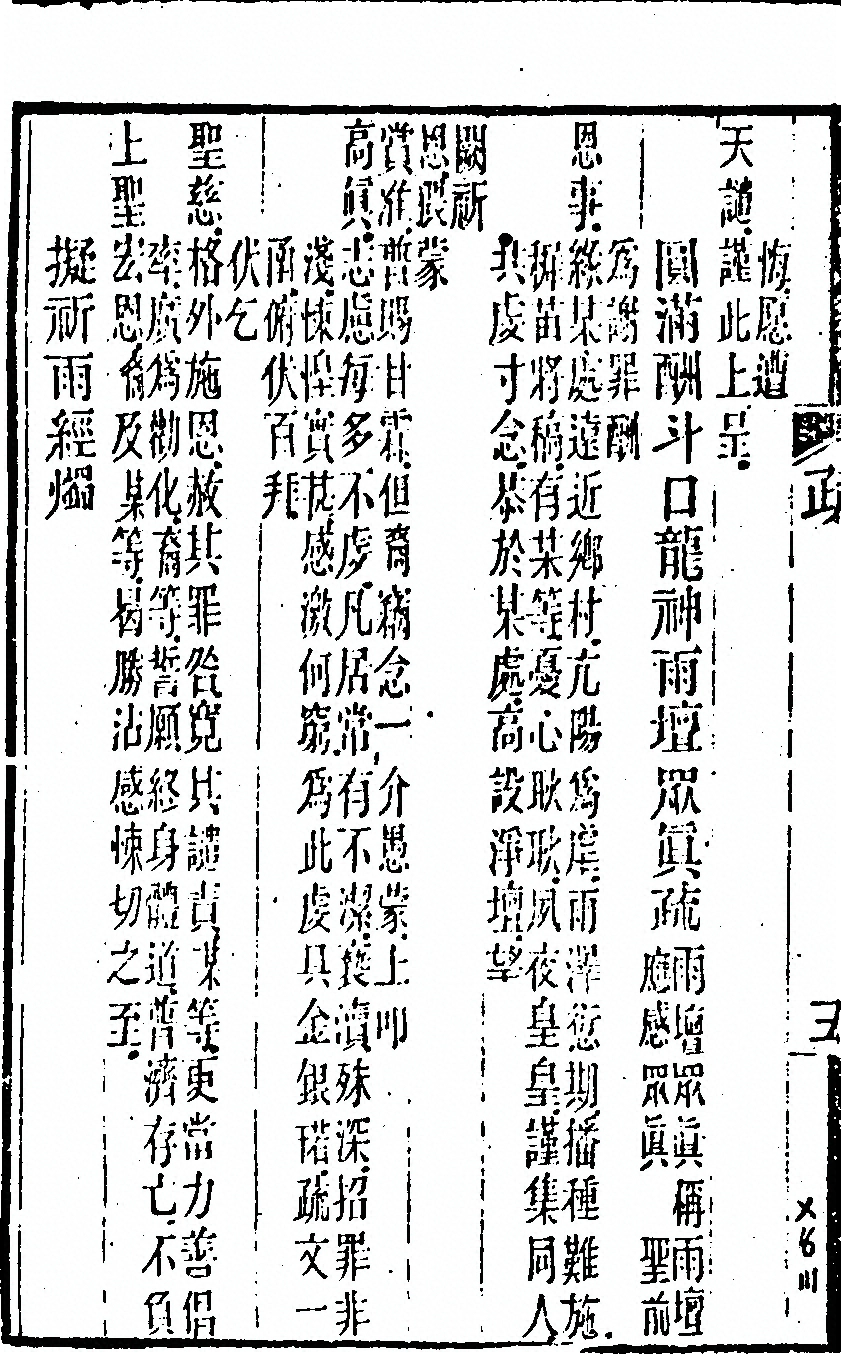 悔愿遭
天譴謹此上呈
圓滿酬斗口龍神雨壇眾眞疏雨壇眾眞稱雨壇應感眾眞聖前
爲謝罪酬
恩事緣某處遠近鄉村亢陽爲虐雨澤愆期播種難施
秧苗將槁有某等憂心耿耿夙夜皇皇謹集同人
共虔寸念恭於某處高設淨壇望
闕祈
恩猥蒙
賞准普賜甘霖但裔竊念一介愚蒙上叩
高眞志慮每多不虔凡居常有不潔褻瀆殊深招罪非
淺悚惶實甚感激何窮爲此虔具金銀瑤疏文一
函俯伏百拜
伏乞
聖慈格外施恩赦其罪咎寬其譴責某等更當力善倡
率廣爲勸化裔等誓願終身體道普濟存亡不負
上聖宏恩裔及某等曷勝沾感悚切之至
擬祈雨經
疏